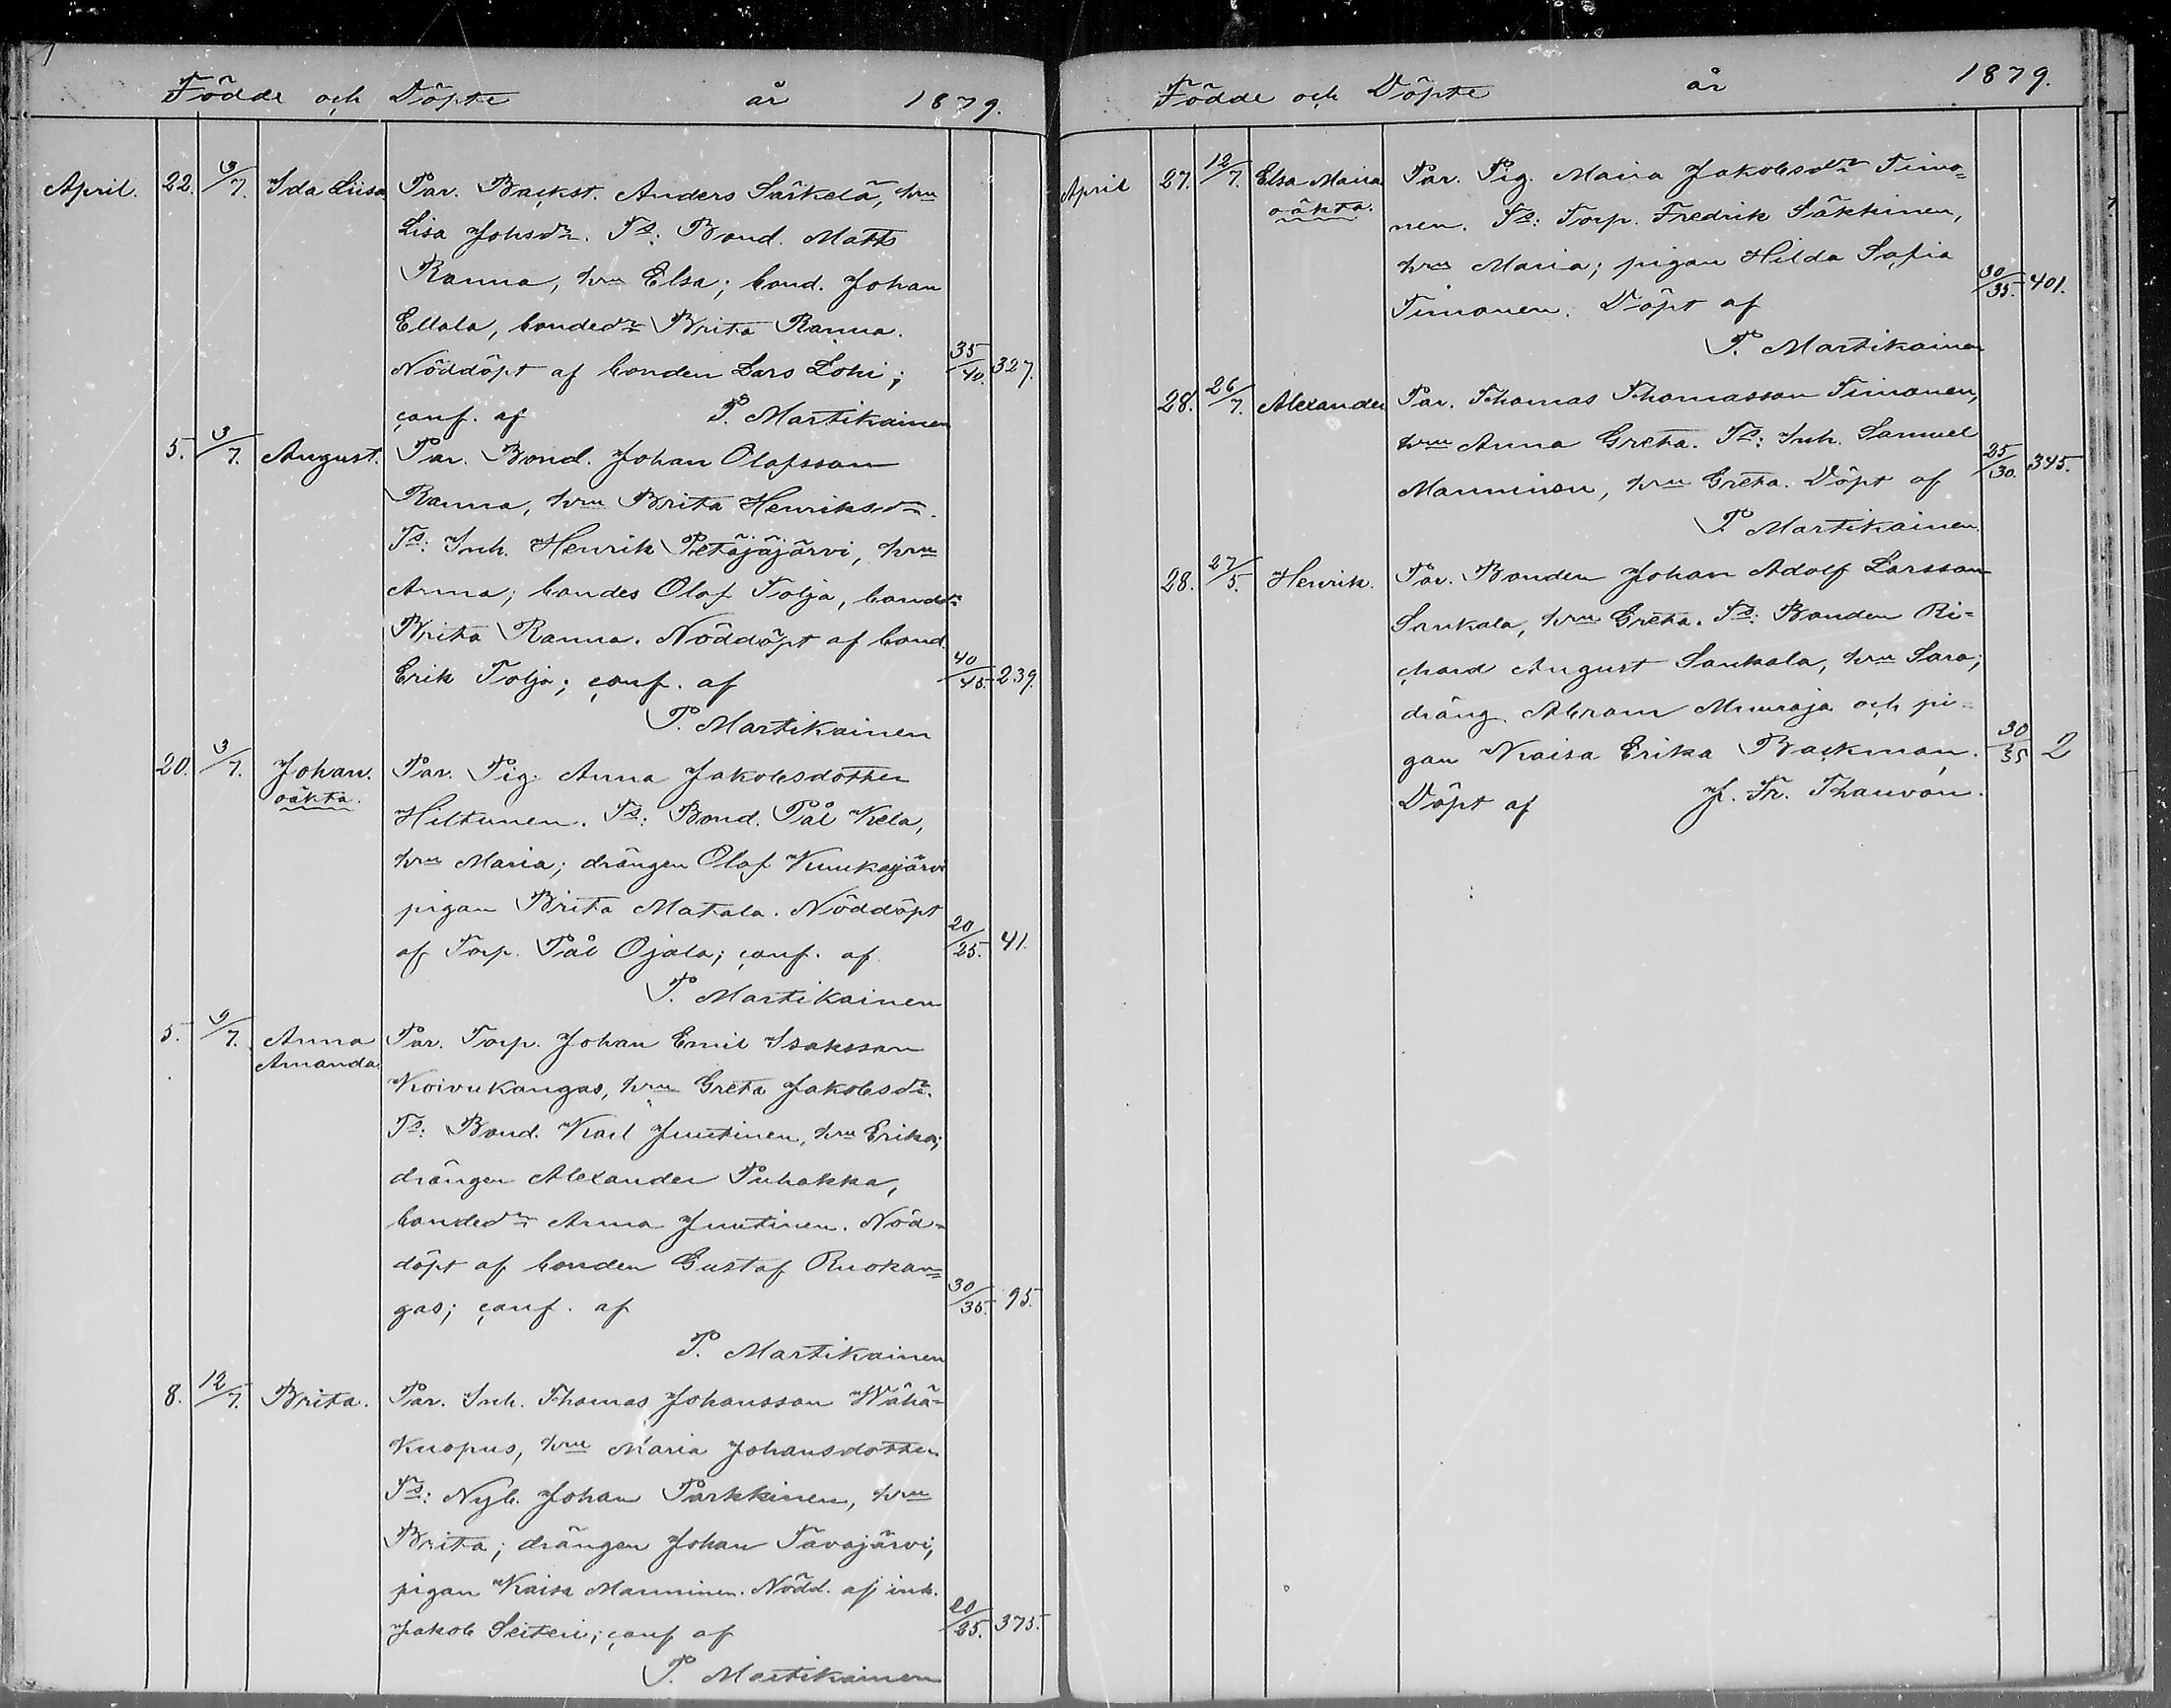 Födde och Döpte år 1879.
April. 22. 3/7. Ida Liisa Par. Backst. Anders Särkelä, hru
Lisa Johsdr. Ts: Bond. Matts
Ranna, hru Elsa; bond. Johan
Ellala, bondedr Brita Ranna.
Nöddöpt af bonden Lars Lohi; 35/40. 327.
conf. af P. Martikainen
5. 3/7. August. Par. Bond. Johan Olofsson
Ranna, hru Brita Henriksdr.
Ts: Inh. Henrik Petäjäjärvi, hru
Anna; bondes Olof Tolja, bondedr
Brita Ranna. Nöddöpt af bond.
Erik Tolja; conf. af 40/45. 239.
P. Martikainen
20. 3/7. Johan. Par. Pig. Anna Jakobsdotter
oäkta.
Hiltunen. Ts: Bond. Pål Kela,
hru Maria; drängen Olof Kuukasjärvi
pigan Brita Matala. Nöddöpt
af Torp. Pål Ojala; conf. af 20/25. 41.
P. Martikainen
5. 9/7. Anna Par. Torp. Johan Emil Isaksson
Amanda
Koivukangas, hru Greta Jakobsdr.
Ts: Bond. Karl Juutinen, hru Erika;
drängen Alexander Puhakka,
bondedr Anna Juutinen. Nöd-
döpt af bonden Gustaf Ruokan=
gas; conf. af 30/35. 95.
P. Martikainen
8. 12/7. Brita. Par. Inh. Thomas Johansson Wähä-
kuopus, hru Maria Johansdotter
Ts: Nyb. Johan Parkkinen, hru
Brita; drängen Johan Tavajärvi,
pigan Kaisa Manninen. Nödd. af inh.
Jakob Seiteri; conf af 20/25. 375.
P. Martikainen
Födde och Döpte år 1879.
April 27. 12/7. Elsa Maria Par. Pig. Maria Jakobsdr Timo=
oäkta.
nen. Ts: Torp. Fredrik Säkkinen,
hru Maria; pigan Hilda Sofia 30/35. 401.
Timonen. Döpt af
P. Martikainen
28. 26/7. Alexander Par. Thomas Thomasson Timonen,
hru Anna Greta. Ts: Inh. Samuel 25/30. 345.
Manninen, hru Greta. Döpt af
P. Martikainen.
28. 27/5. Henrik. Par. Bonden Johan Adolf Larsson
Sankala, hru Greta. Ts: Bonden Ri-
chard August Sankala, hru Sara;
dräng. Abram Muuraja och pi-
gan Kaisa Erika Backman. 30/35 2
Döpt af J. Fr. Thauvón.